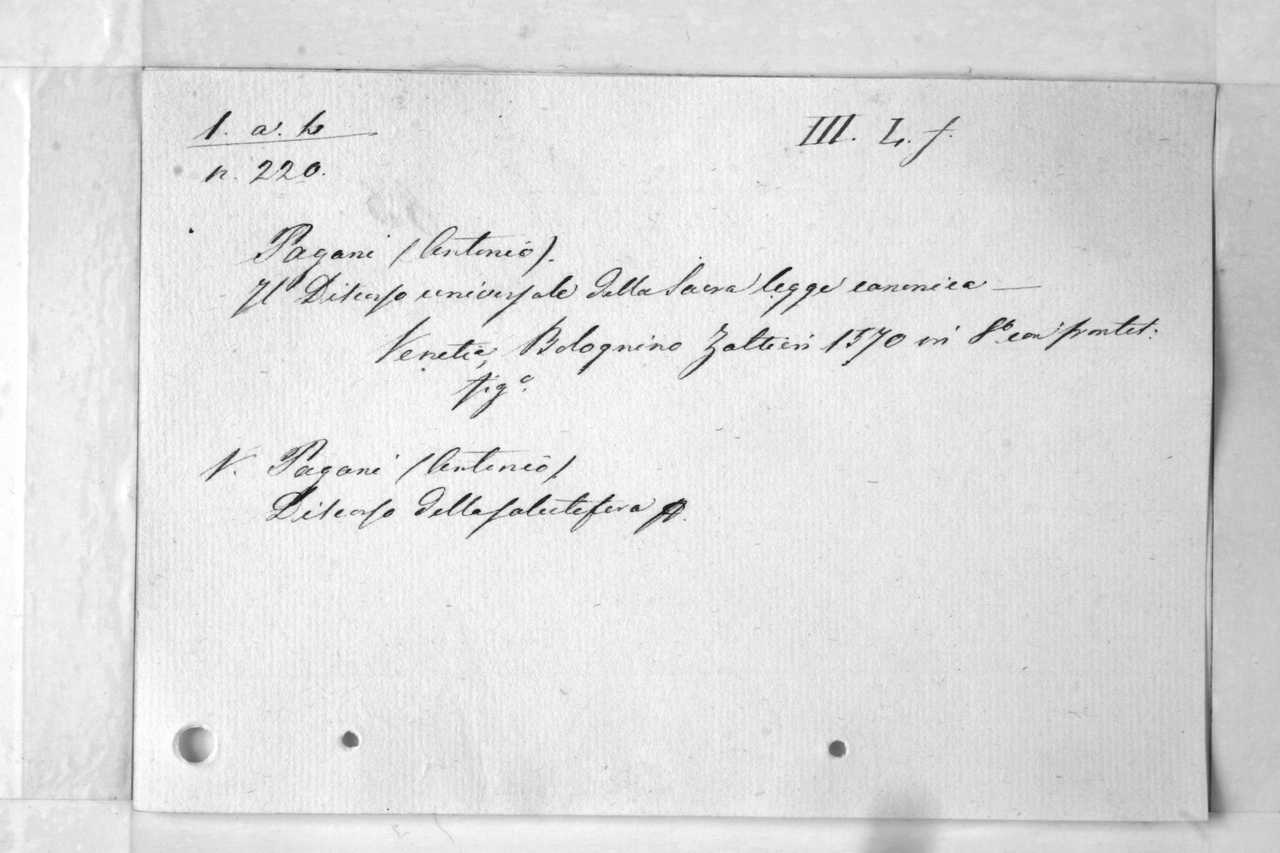 1. a. b
III. L. f.
n. 220.
Pagani (Antonio).
Il Discorso universale della Sacra legge canonica —
Venetia, Bolognino Zaltieri 1570 in 8.º con frontesp:
figº.
V. Pagani (Antonio)
Discorso della salutifera